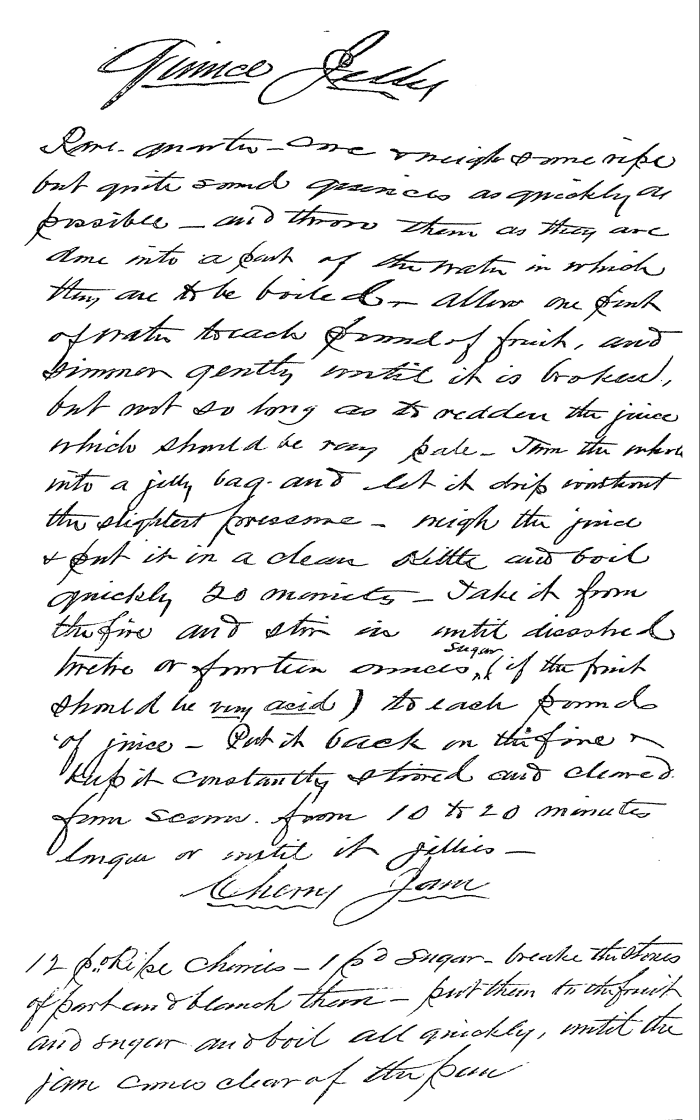 Quince Jelly
Pare - quarter - core & weigh some ripe
but quite sound quinces as quickly as
possible - and throw them as they are
done into a part of the water in which
they are to be boiled - allow one pint
of water to each pound of fruit, and
simmer gently until it is broken,
but not so long as to redden the juice
which should be very pale - Turn the whole
into a jelly bag - and let it drip without
the slightest pressure - weigh the juice
& put it in a clean Kettle and boil
quickly 20 minutes - Take it from
the fire and stir in until dissolved
twelve or fourteen ounces sugar (if the fruit
should be very acid) to each pound
of juice - Put it back on the fire &
keep it constantly stirred and cleared
from scum. from 10 to 20 minutes
longer or until it jellies -
Cherry Jam
12 Ripe Cherries - 1 pd sugar - break the stones
of part and blanch them - put them to the fruit
and sugar and boil all quickly, until the
jam comes clear of the pan